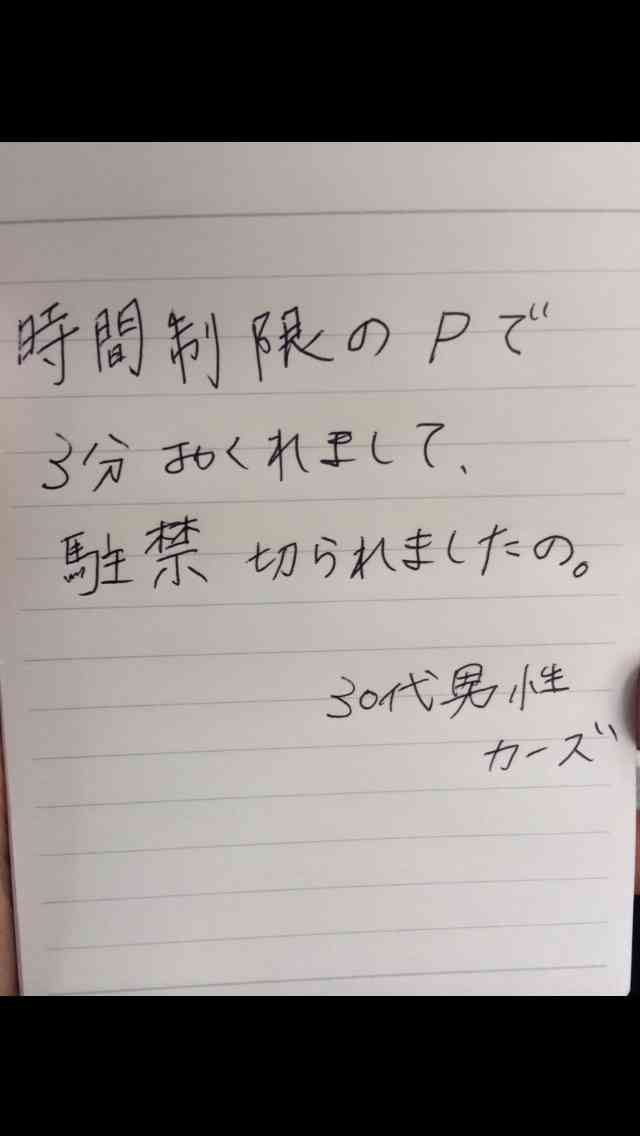 時間制限のPで
3分おくれまして、
駐禁切られましたの。
30代男性
カーズ